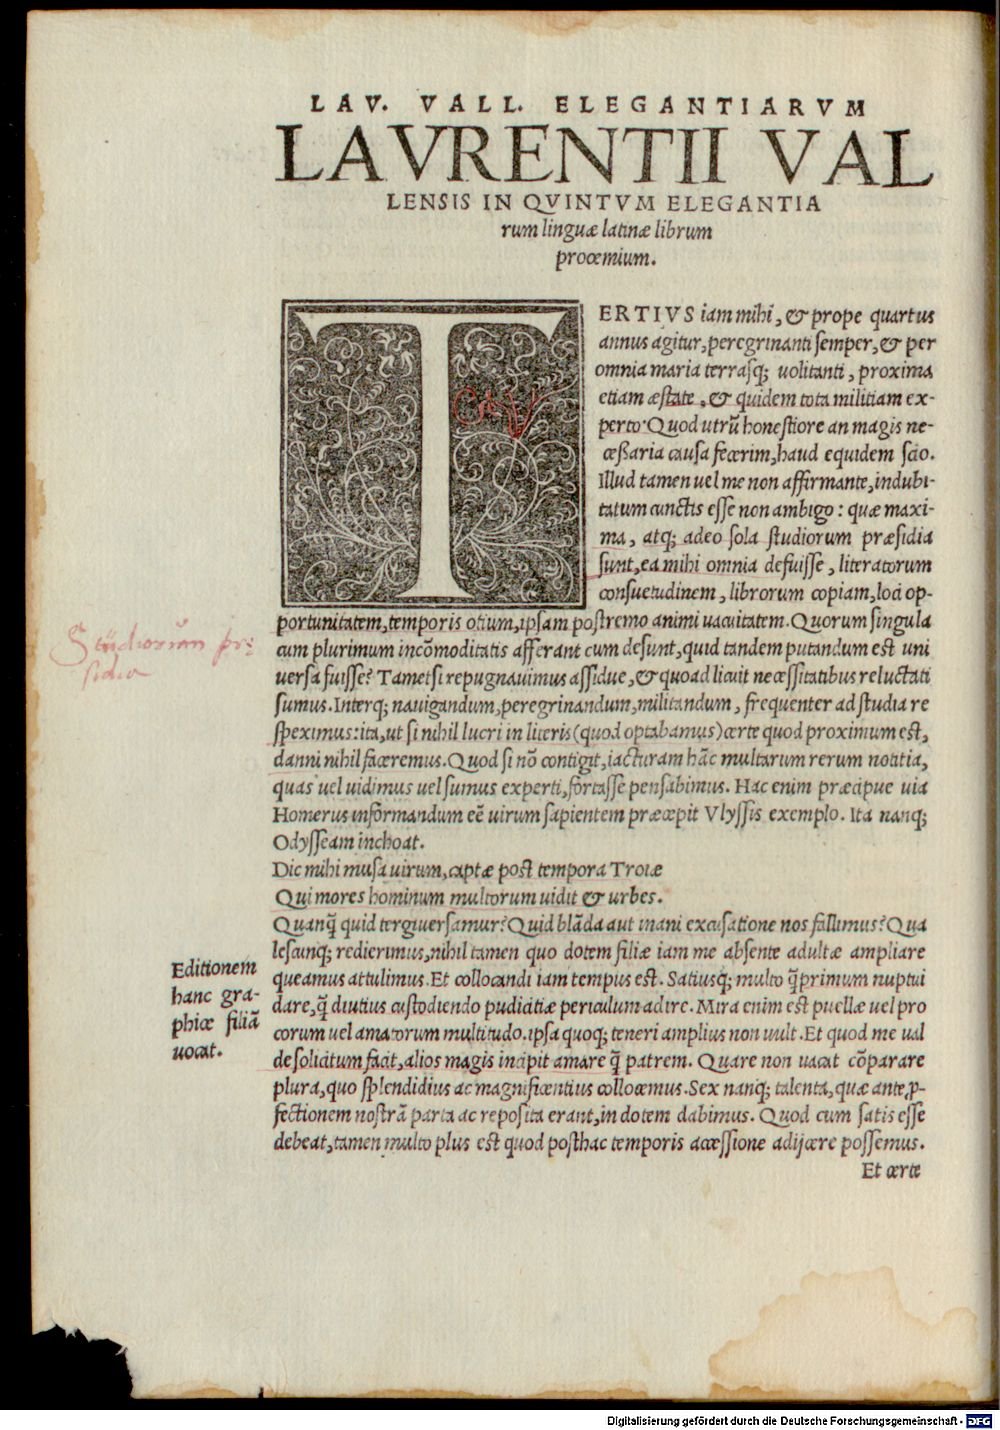 LAV. VALL. ELEGANTIARVM
LAVRENTII VAL
LENSIS IN QVINTVM ELEGANTIA
rum linguæ latinæ librum
proœmium.
TERTIVS iam mihi, & prope quartus
annus agitur, peregrinanti semper, & per
omnia maria terrasq; uolitanti, proxima
etiam æstate, & quidem tota militiam ex-
perto. Quod utrũ honestiore an magis ne-
cessaria causa fecerim, haud equidem scio.
Illud tamen uel me non affirmante, indubi-
tatum cunctis esse non ambigo: quæ maxi-
ma, atq; adeo sola studiorum præsidia
sunt, ea mihi omnia defuisse, literatorum
consuetudinem, librorum copiam, loci op-
portunitatem, temporis otium, ipsam postremo animi uacuitatem. Quorum singula
cum plurimum incõmoditatis afferant cum desunt, quid tandem putandum est uni
uersa fuisse? Tametsi repugnauimus assidue, & quoad licuit necessitatibus reluctati
sumus. Interq; nauigandum, peregrinandum, militandum, frequenter ad studia re
speximus: ita, ut si nihil lucri in literis (quod optabamus) certe quod proximum est,
danni nihil faceremus. Quod si nõ contigit, iacturam hãc multarum rerum notitia,
quas uel uidimus uel sumus experti, fortasse pensabimus. Hac enim præcipue uia
Homerus informandum eẽ uirum sapientem præcepit Vlyssis exemplo. Ita nanq;
Odysseam inchoat.
Dic mihi musa uirum, captæ post tempora Troiæ
Qui mores hominum multorum uidit & urbes.
Quanq̃ quid tergiuersamur? Quid blãda aut inani excusatione nos fallimus? Qua
lescunq; redierimus, nihil tamen quo dotem filiæ iam me absente adultæ ampliare
queamus attulimus. Et collocandi iam tempus est. Satiusq; multo q̃primum nuptui
dare, q̃ diutius custodiendo pudicitiæ periculum adire. Mira enim est puellæ uel pro
corum uel amatorum multitudo. ipsa quoq; teneri amplius non uult. Et quod me ual
de solicitum facit, alios magis incipit amare q̃ patrem. Quare non uacat cõparare
plura, quo splendidius ac magnificentius collocemus. Sex nanq; talenta, quæ ante ꝓ-
fectionem nostrã parta ac reposita erant, in dotem dabimus. Quod cum satis esse
debeat, tamen multo plus est quod posthac temporis accessione adijcere possemus.
Et certe
Studiorum præ
sidia
Editionem
hanc gra-
phice filiã
uocat.
Digitalisierung gefördert durch die Deutsche Forschungsgemeinschaft - DFG